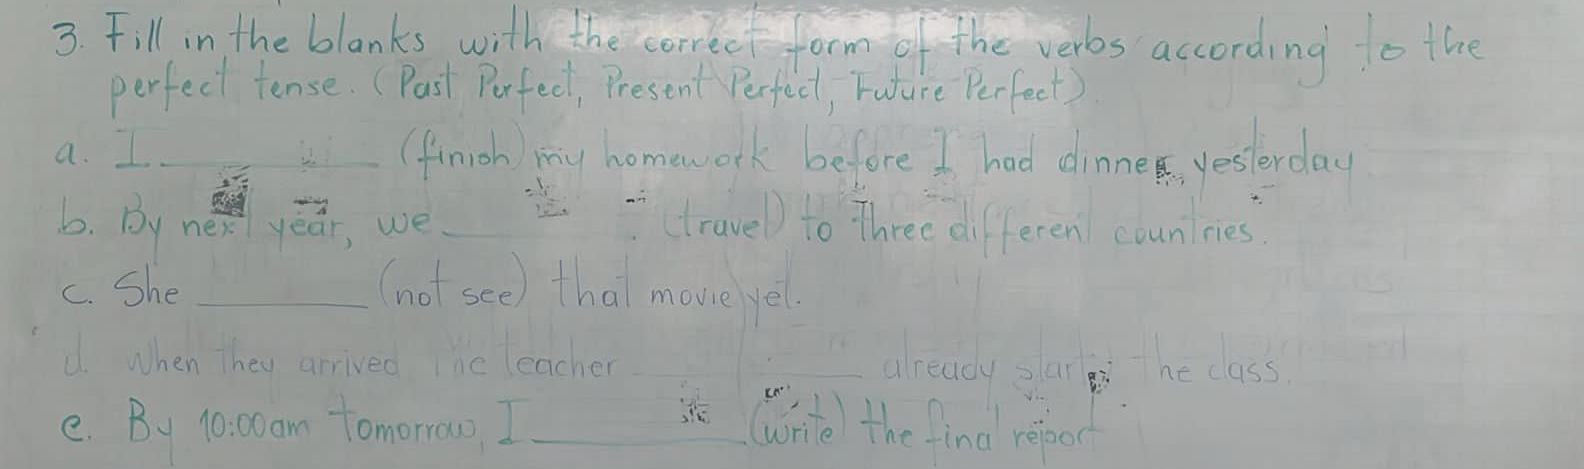 3. Fill in the blanks with the correct form of the verbs according to the
perfect tense. (Past Perfect, Present Perfect, Future Perfect)
a. I ________ (finish) my homework before I had dinner, yesterday
b. By next year, we ________ (travel) to three different countries.
c. She ________ (not see) that movie yet.
d. When they arrived the teacher ________ already start the class.
e. By 10:00am tomorrow, I ________ (write) the final report